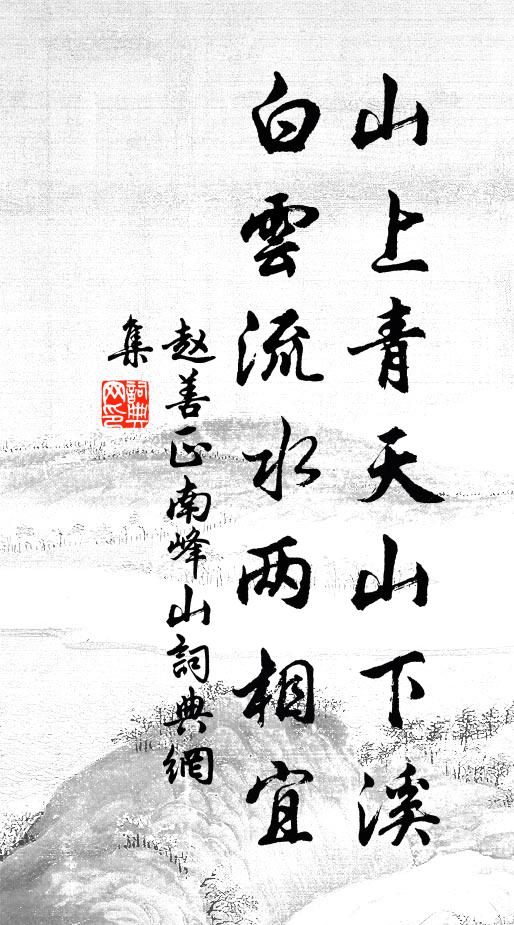 山上青天山下溪
白雲流水两相宜
赵善正南峰山詞典網
集
詞典
网印